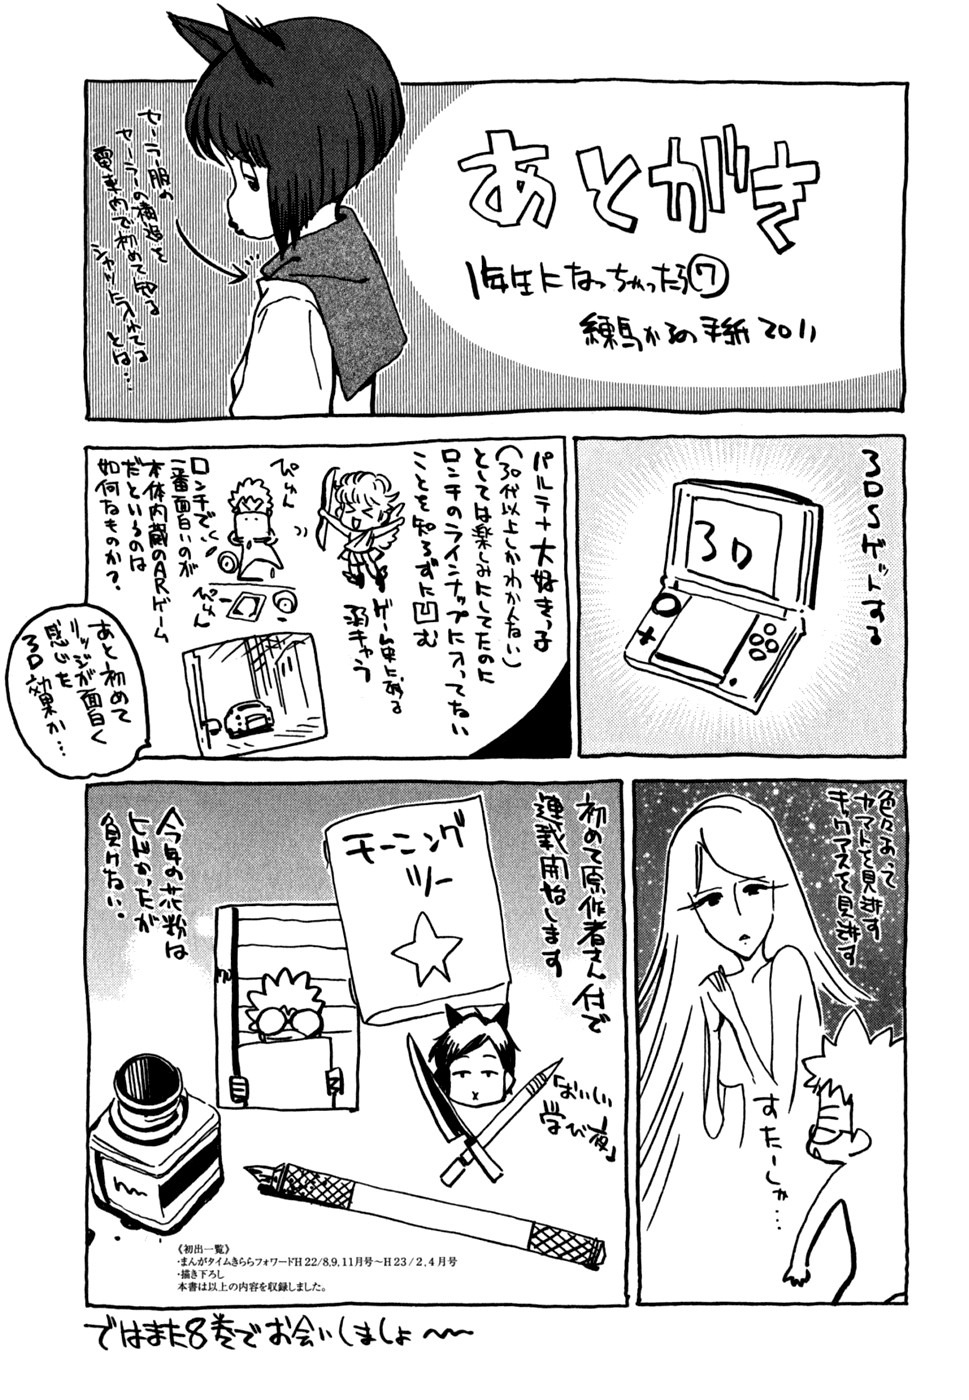 あとがき
1年生になっちゃったら⑦
練馬かるの手紙2011
セーラー服の
セーラーの構造を
電車内で初めて知る
シャツに入れてる
とは…
3DSゲットする
3D
パルテナ大好きっ子
(30代以上しかわかんない)
としては楽しみにしてたのに
ロンチのラインナップに入ってない
ことを知らずに凹む
ゲーム史に残る
弱キャラ
ぴゅん
ロンチで、
一番面白いのが
本体内蔵のARゲーム
だというのは
如何なものか?
ぴゅん
あと初めて
リッジが面白く
感じた
3D効果か…
色々あって
ヤマトを見逃す
キャクアスを見逃す
すたーしゃ…
初めて原作者さん付で
連載開始します
モーニング
ツー
「はいしい
学び夜」
今年の花粉は
ヒドかったが
負けない。
《初出一覧》
・まんがタイムきららフォワードH22/8,9,11月号〜H23/2,4月号
・描き下ろし
本書は以上の内容を収録しました。
ではまた8巻でお会いしましょ〜〜